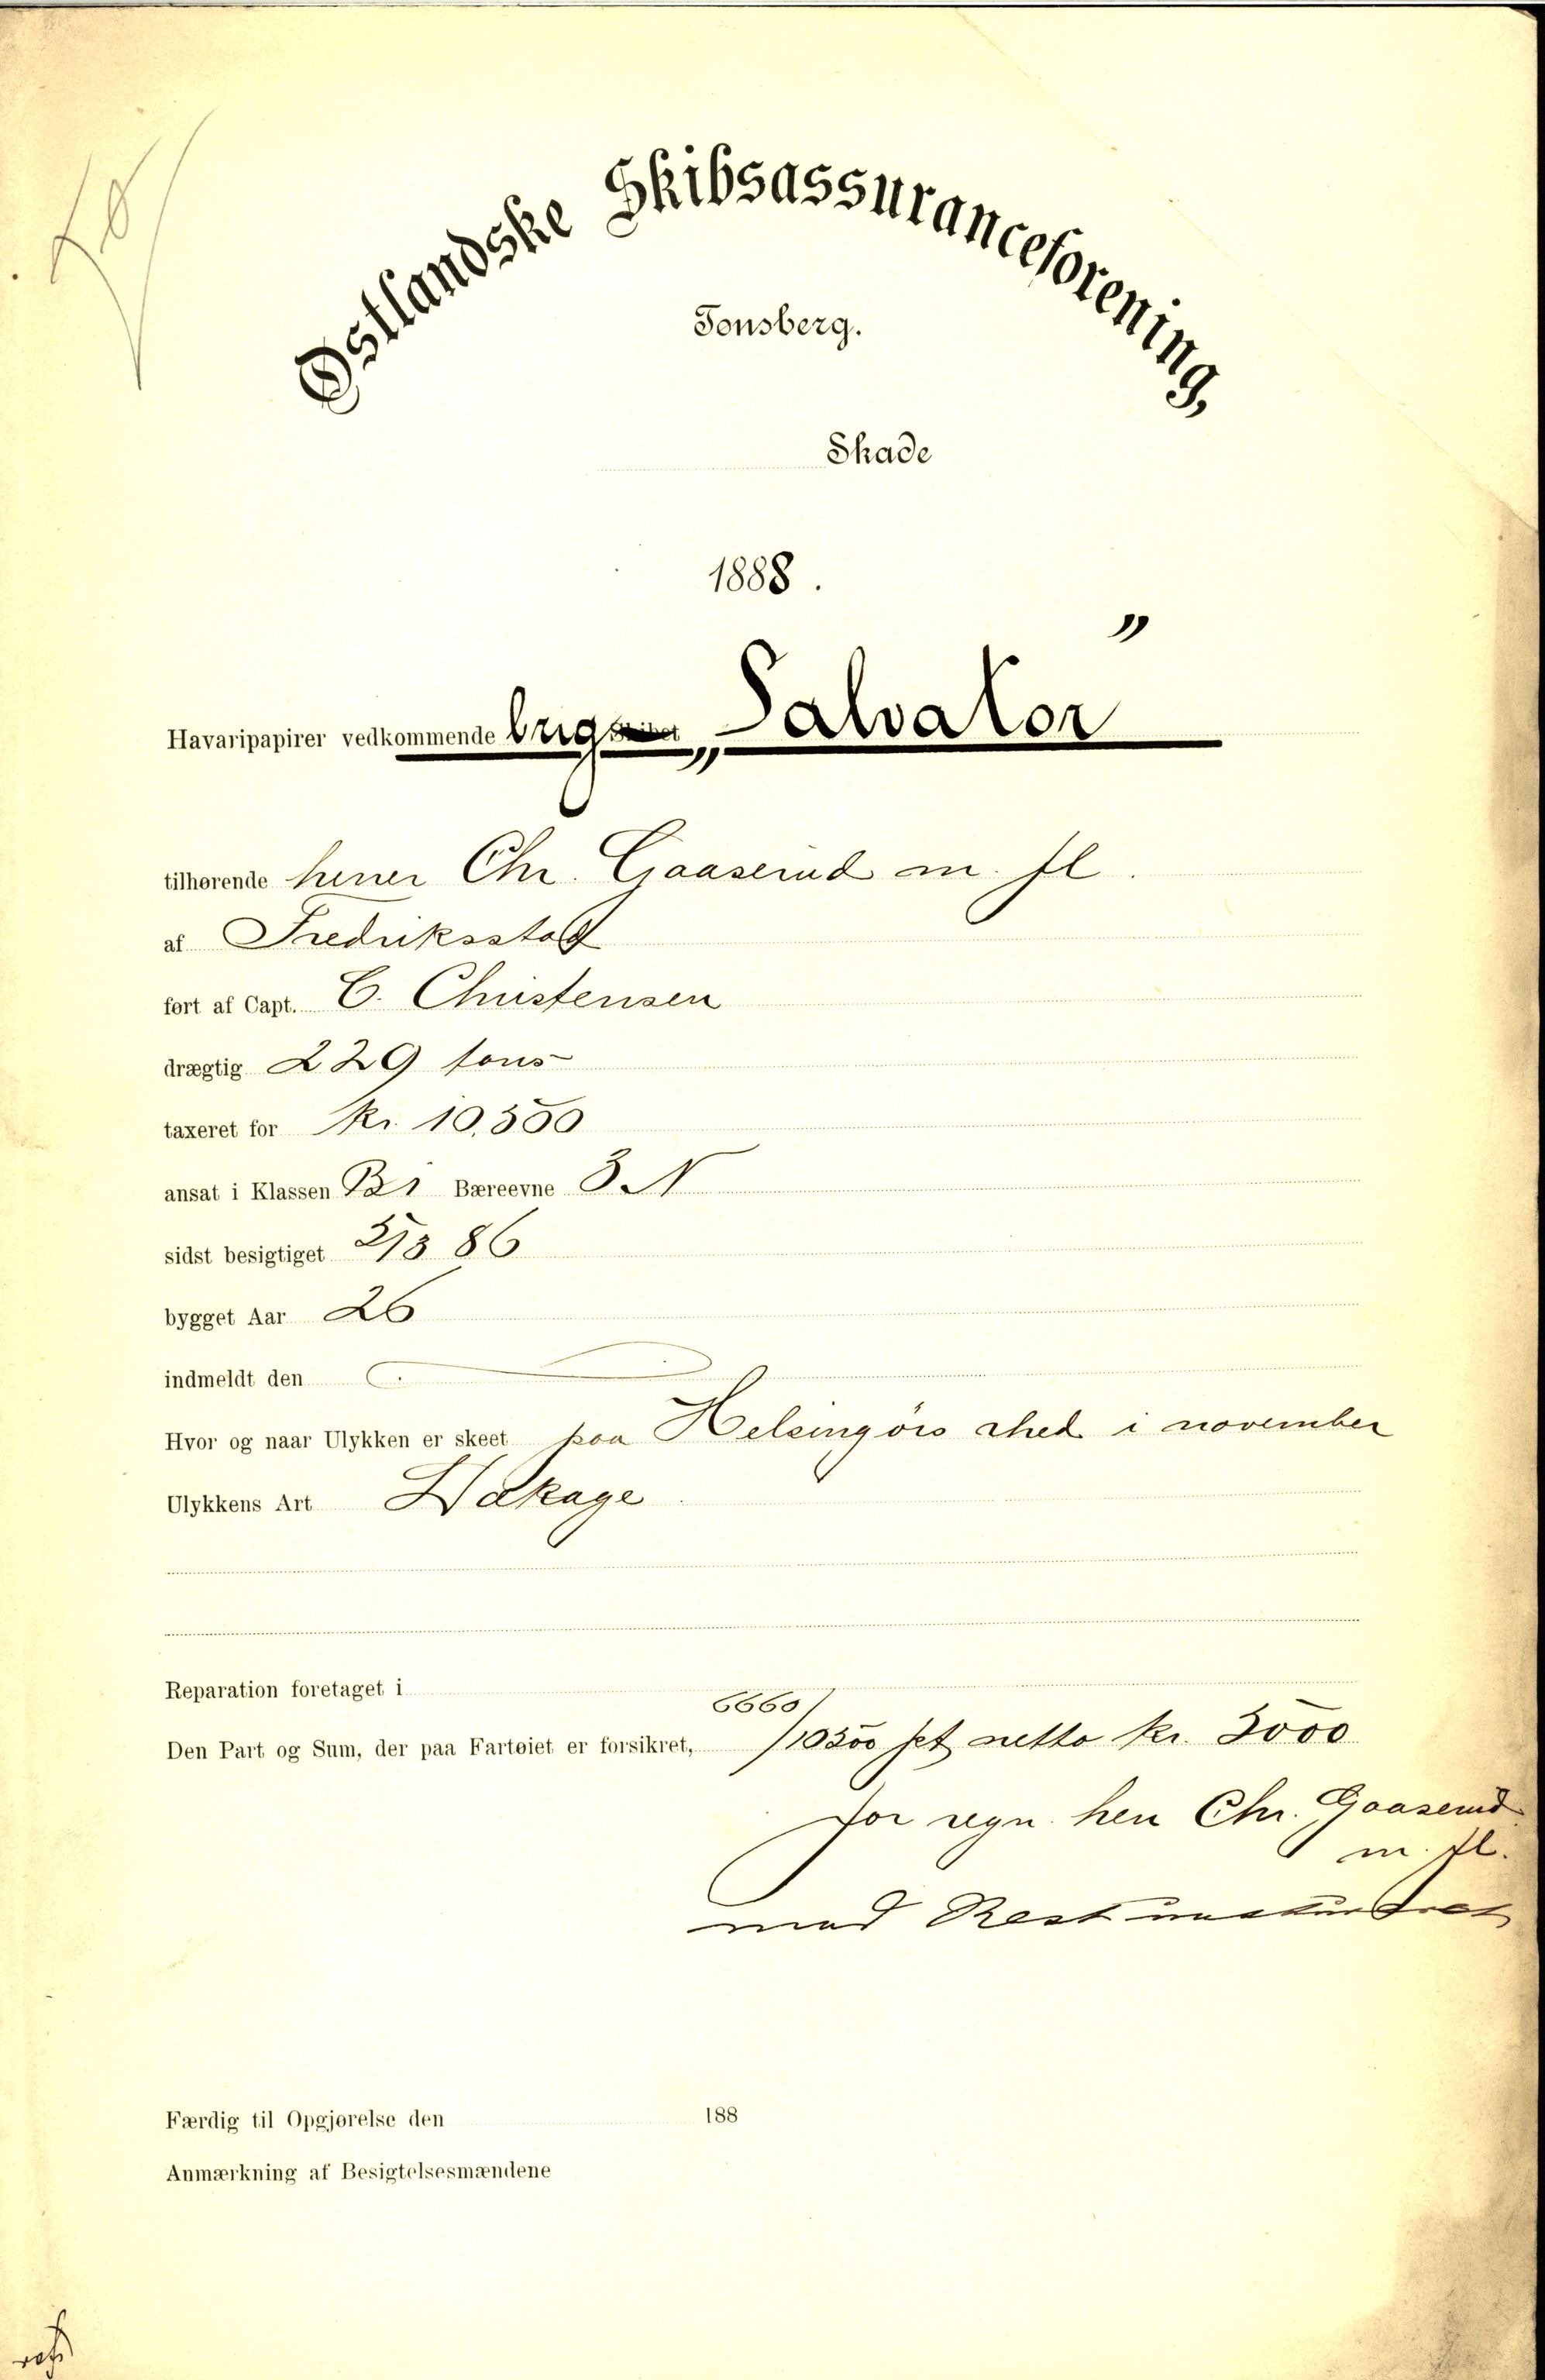 Østlandske Skibsassuranceforening,
Tønsberg.
Skade
1888.
Havaripapirer vedkommende brig „Salvator”
tilhørende herrer Chr. Gaaserud m. fl.
af Fredriksstad
ført af Capt. C. Christensen
drægtig 229 tons
taxeret for kr. 10.500
ansat i Klassen B1 Bæreevne 3 N
sidst besigtiget 5/3 86
bygget Aar 26
indmeldt den
Hvor og naar Ulykken er skeet paa Helsingörs rhed i november
Ulykkens Art Lækage
Reparation foretaget i
Den Part og Sum, der paa Fartøiet er forsikret, 6660/10500 pt netto kr. 5000
for regn. herr Chr. Gaaserud
m. fl.
mod Rest
Færdig til Opgjørelse den 188
Anmærkning af Besigtelsesmændene